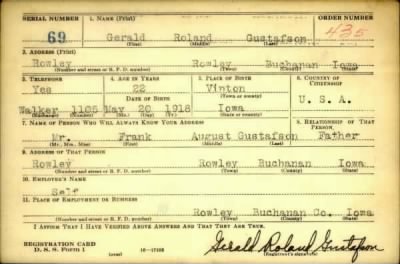 SERIAL NUMBER 1. NAME (Print) ORDER NUMBER
69 Gerald Roland Gustafson 435
(First) (Middle) (Last)
2. ADDRESS (Print)
Rowley Rowley Buchanan Iowa
(Number and street or R. F. D. number) (Town) (County) (State)
3. TELEPHONE 4. AGE IN YEARS 5. PLACE OF BIRTH 6. COUNTRY OF CITIZENSHIP
Yes 22 Vinton
(Town or county)
DATE OF BIRTH U. S. A.
Walker 1105 May 20 1918 Iowa
(Exchange) (Number) (Mo.) (Day) (Yr.) (State or country)
7. NAME OF PERSON WHO WILL ALWAYS KNOW YOUR ADDRESS 8. RELATIONSHIP OF THAT PERSON
Mr. Frank August Gustafson Father
(Mr., Mrs., Miss) (First) (Middle) (Last)
9. ADDRESS OF THAT PERSON
Rowley Rowley Buchanan Iowa
(Number and street or R. F. D. number) (Town) (County) (State)
10. EMPLOYER'S NAME
Self
11. PLACE OF EMPLOYMENT OR BUSINESS
Rowley Buchanan Co. Iowa
(Number and street or R. F. D. number) (Town) (County) (State)
I AFFIRM THAT I HAVE VERIFIED ABOVE ANSWERS AND THAT THEY ARE TRUE.
REGISTRATION CARD
D. S. S. Form 1 (over) Gerald Roland Gustafson
(Registrant's signature)